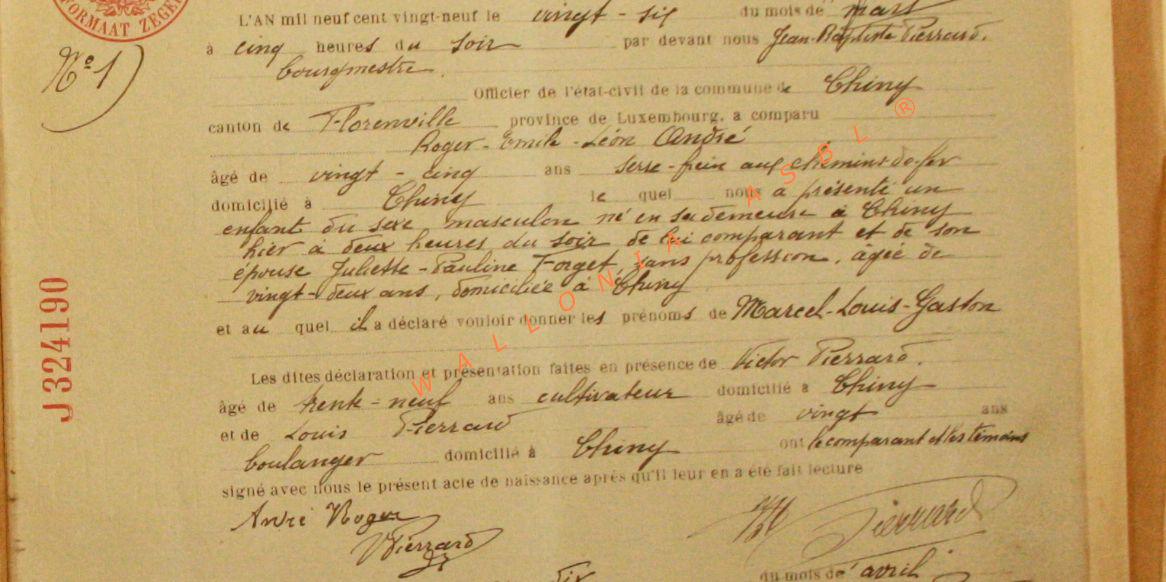 FORMAAT ZEGEL
L'AN mil neuf cent vingt-neuf le vingt-six du mois de mars
N° 1)
à cinq heures du soir par devant nous Jean-Baptiste Pierrard,
bourgmestre
Officier de l'état-civil de la commune de Chiny
canton de Florenville province de Luxembourg, a comparu
Roger-Emile-Léon André
âgé de vingt-cinq ans serre-frein aux chemins de fer
domicilié à Chiny le quel nous a présenté un
enfant du sexe masculin né en sa demeure à Chiny
hier à deux heures du soir de lui comparant et de son
épouse Juliette-Pauline Forget, sans profession, âgée de
vingt-deux ans, domiciliée à Chiny
et au quel il a déclaré vouloir donner les prénoms de Marcel-Louis-Gaston
J 324190
Les dites déclaration et présentation faites en présence de Victor Pierrard,
âgé de trente-neuf ans cultivateur domicilié à Chiny
et de Louis Pierrard âgé de vingt ans
boulanger domicilié à Chiny ont le comparant et les témoins
signé avec nous le présent acte de naissance après qu'il leur en a été fait lecture
André Roger
VPierrard
Pierrard
du mois de avril
WALLONIA ASBL ®